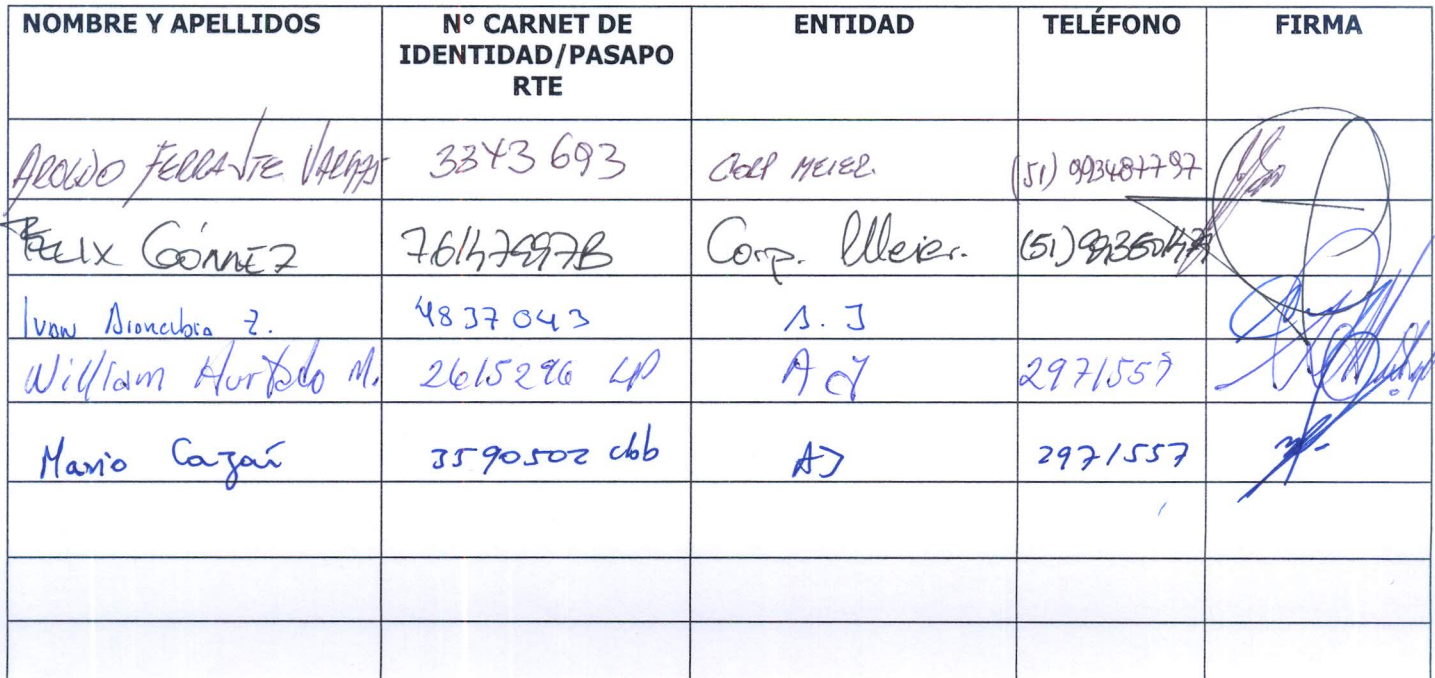 NOMBRE Y APELLIDOS N° CARNET DE IDENTIDAD/PASAPO RTE ENTIDAD TELÉFONO FIRMA
AROLDO FERRANTE VARGAS 3343693 CORP MEIER. (51) 993487797
FELIX GÓMEZ Corp. Meier. (51)
Ivan 4837043 A. J
William Hurtado M. 2615296 LP AJ 2971557
Mario 3590502 cbb AJ 2971557